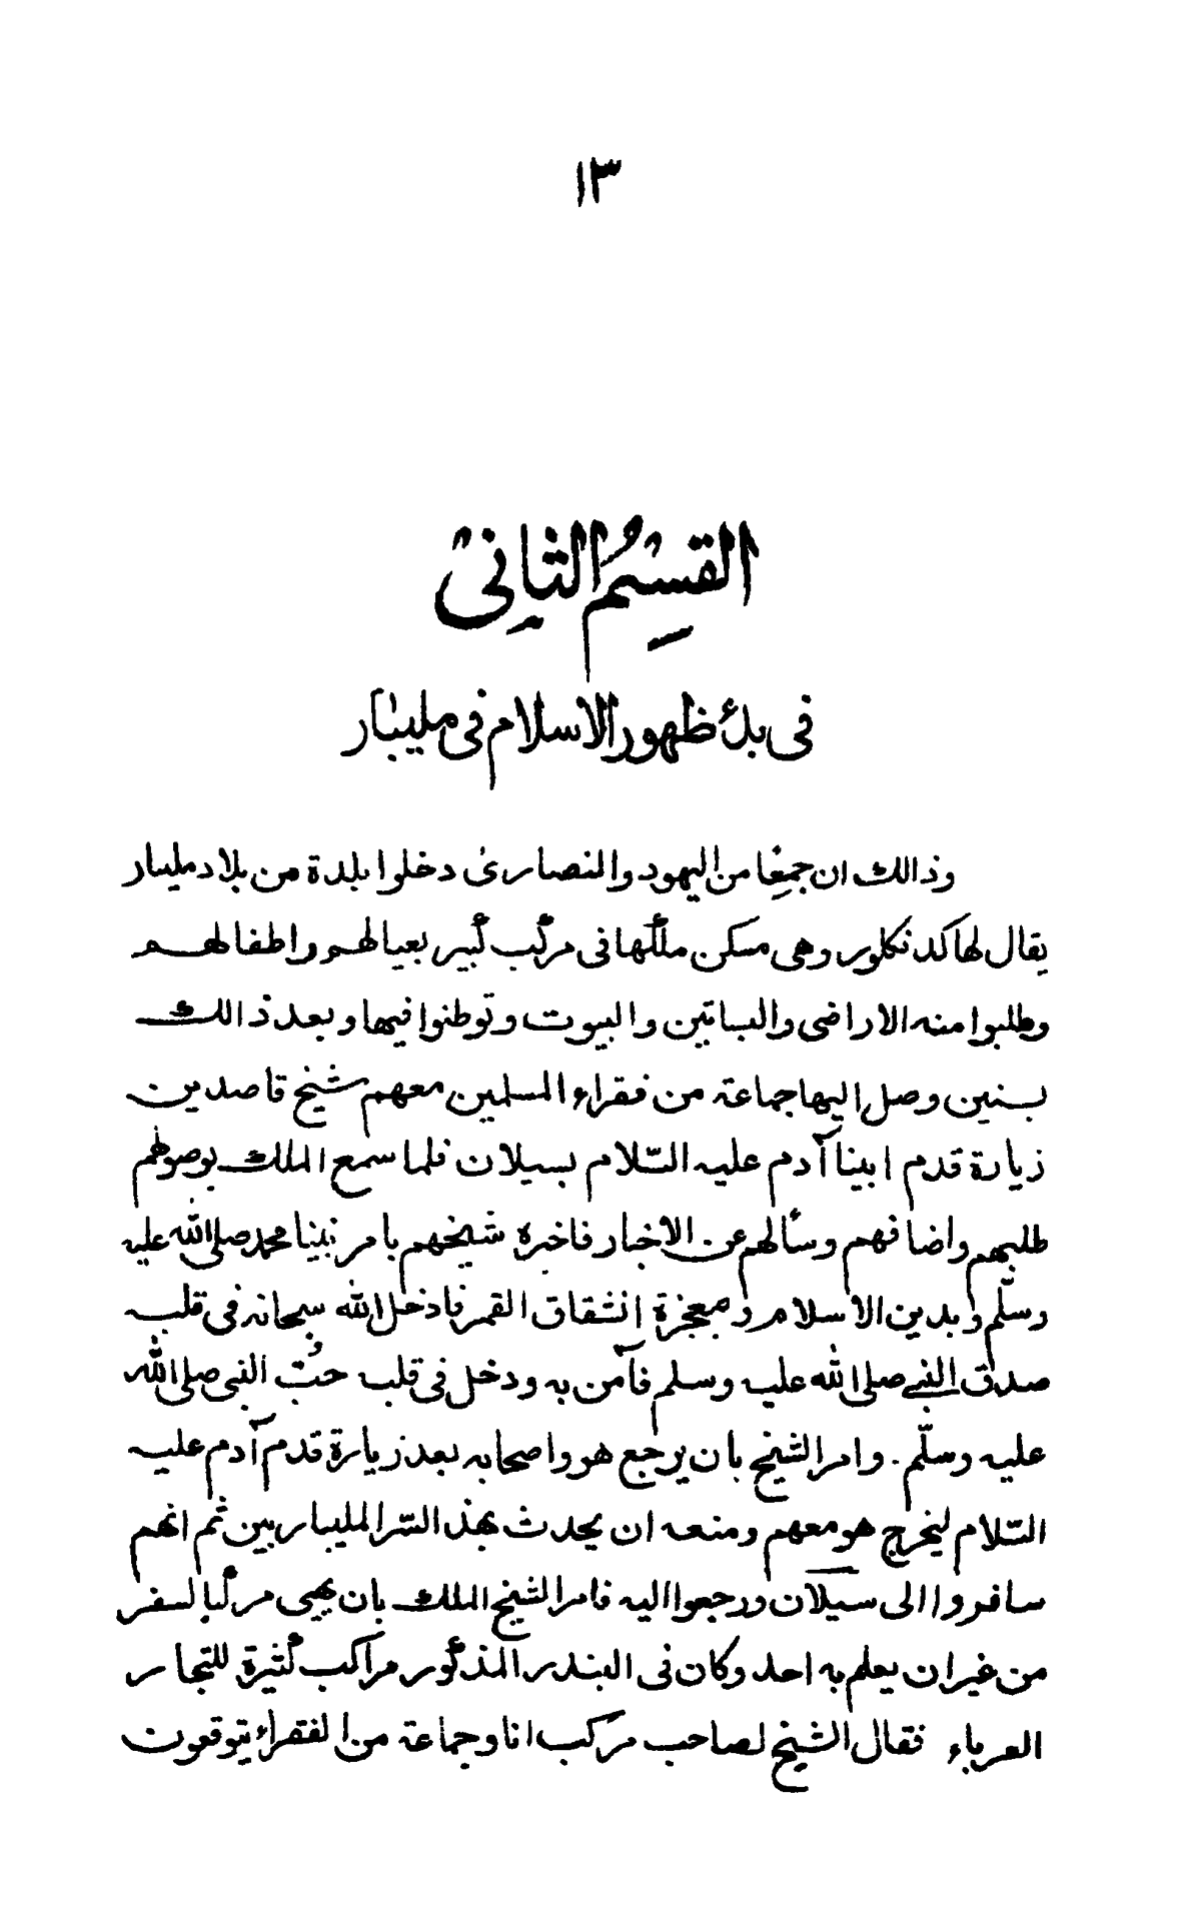 ١٣
القِسْمُ الثانِیْ
فى بدء ظهور الاسلام فى مليبار
وذالك ان جمعًا من اليهود والنصارىٰ دخلوا بلدة من بلاد مليبار
يقال لها كدنكلور وهى مسكن ملكها فى مركب كبير بعيالهم واطفالهم
وطلبوا منه الاراضى والبساتين والبيوت وتوطنوا فيها وبعد ذالك
بسنين وصل اليها جماعة من فقراء المسلمين معهم شيخ قاصدين
زيارة قدم ابينا آدم عليه السّلام بسيلان فلما سمع الملك بوصولهم
طلبهم واضافهم وسألهم عن الاخبار فاخبره شيخهم بامر نبينا محمد صلى الله عليه
وسلّم وبدين الاسلام وبمعجزة انشقاق القمر فادخل الله سبحانه فى قلبه
صدق النبى صلى الله عليه وسلم فآمن به ودخل فى قلبه حُبّ النبى صلى الله
عليه وسلّم. وامر الشيخ بان يرجع هو واصحابه بعد زيارة قدم آدم عليه
السّلام ليخرج هو معهم ومنعه ان يحدث بهذ السّر المليباربين ثم انهم
سافروا الى سيلان ورجعوا اليه فامر الشيخ الملك بان يهيى مركبا لسفر
من غير ان يعلم به احد وكان فى البندر المذكور مراكب كثيرة للتجار
العرباء فقال الشيخ لصاحب مركب انا وجماعة من الفقراء يتوقعون